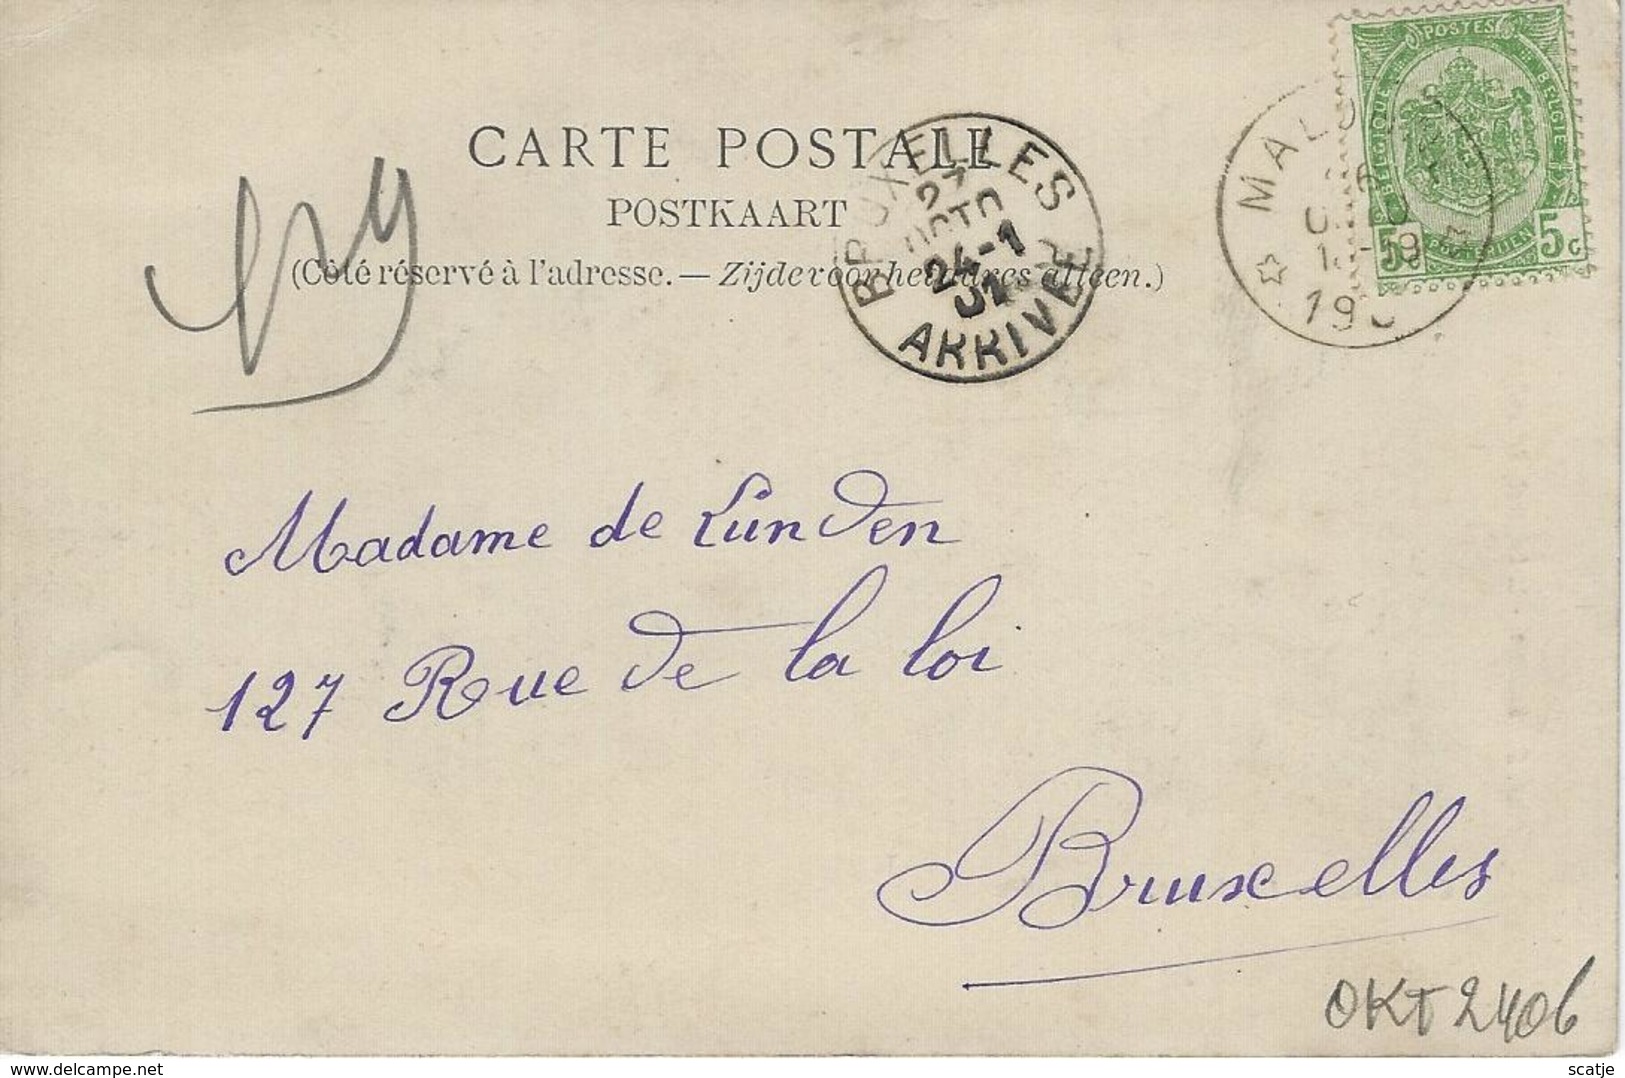 CARTE POSTALE
POSTKAART
(Côté réservé à l'adresse. — Zijde voor het adres alleen.)
BRUXELLES
27
OCTO
24-1
ARRIVÉE
MAL
19
POSTES
BELGIQUE
BELGIË
5c
5c
Madame de Lunden
127 Rue de la loi
Bruxelles
OKT 2406
www.delcampe.net
scatje